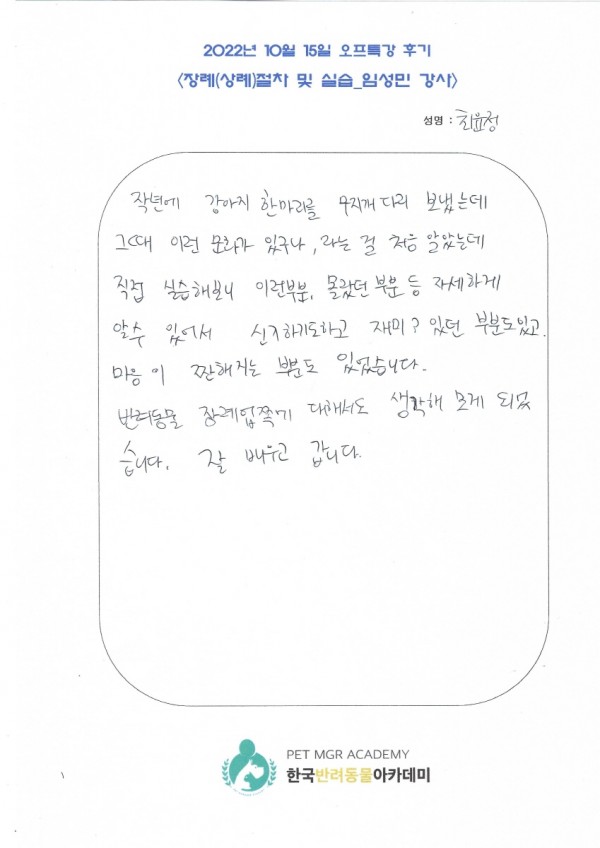 2022년 10월 15일 오프특강 후기
<장례(상례)절차 및 실습_임성민 강사>
성명 : 최윤정
작년에 강아지 한마리를 무지개 다리 보냈는데
그때 이런 문화가 있구나, 라는 걸 처음 알았는데
직접 실습해보니 이런부분, 몰랐던 부분 등 자세하게
알수 있어서 신기하기도하고 재미? 있던 부분도있고.
마음이 짠해지는 부분도 있었습니다.
반려동물 장례업쪽에 대해서도 생각해 보게 되었
습니다. 잘 배우고 갑니다.
PET MGR ACADEMY
한국반려동물아카데미